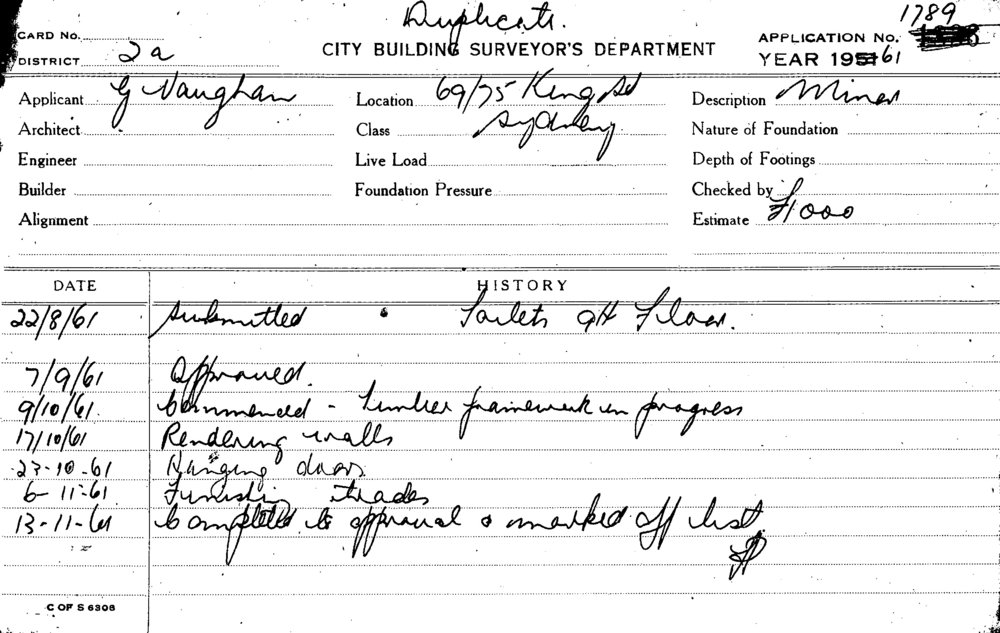 Duplicate.
1789
CARD No.
CITY BUILDING SURVEYOR'S DEPARTMENT
APPLICATION No.
DISTRICT 2a
YEAR 195 61
Applicant G Vaughan
Location 69/75 King St
Description Minor
Architect
Class Sydney
Nature of Foundation
Engineer
Live Load
Depth of Footings
Builder
Foundation Pressure
Checked by
Alignment
Estimate £1000
DATE HISTORY
22/8/61 Submitted • Toilets 9th Floor.
7/9/61 Approved.
9/10/61. Commenced - Timber framework in progress
17/10/61 Rendering walls
23-10-61 Hanging doors
6-11-61 Finishing trades
13-11-61 Completed to approval & marked off list.
C OF S 6306